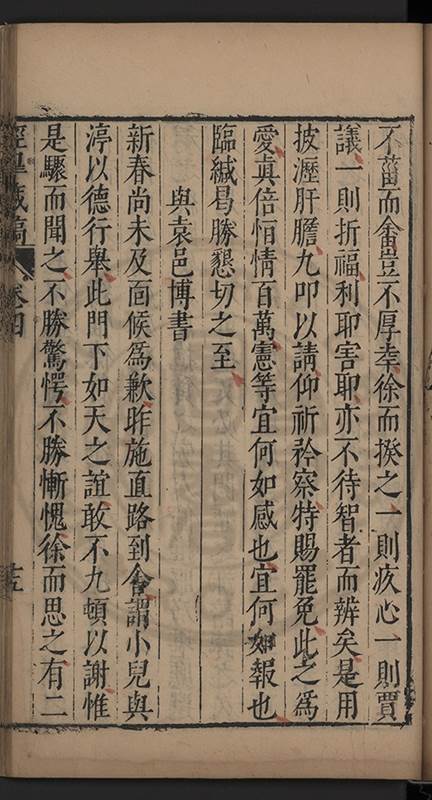 不菑而畬豈不厚幸徐而揆之一則疚心一則賈
議一則折福利耶害耶亦不待智者而辨矣是用
披瀝肝膽九叩以請仰祈矜察特賜罷免此之爲
愛眞倍恒情百萬憲等宜何如感也宜何如報也
臨緘曷勝懇切之至
與袁邑博書
新春尚未及面候爲歉昨施直路到舍謂小兒與
渟以德行舉此門下如天之誼敢不九頓以謝惟
是驟而聞之不勝驚愕不勝慚愧徐而思之有二
涇臯藏稿 卷四 十五